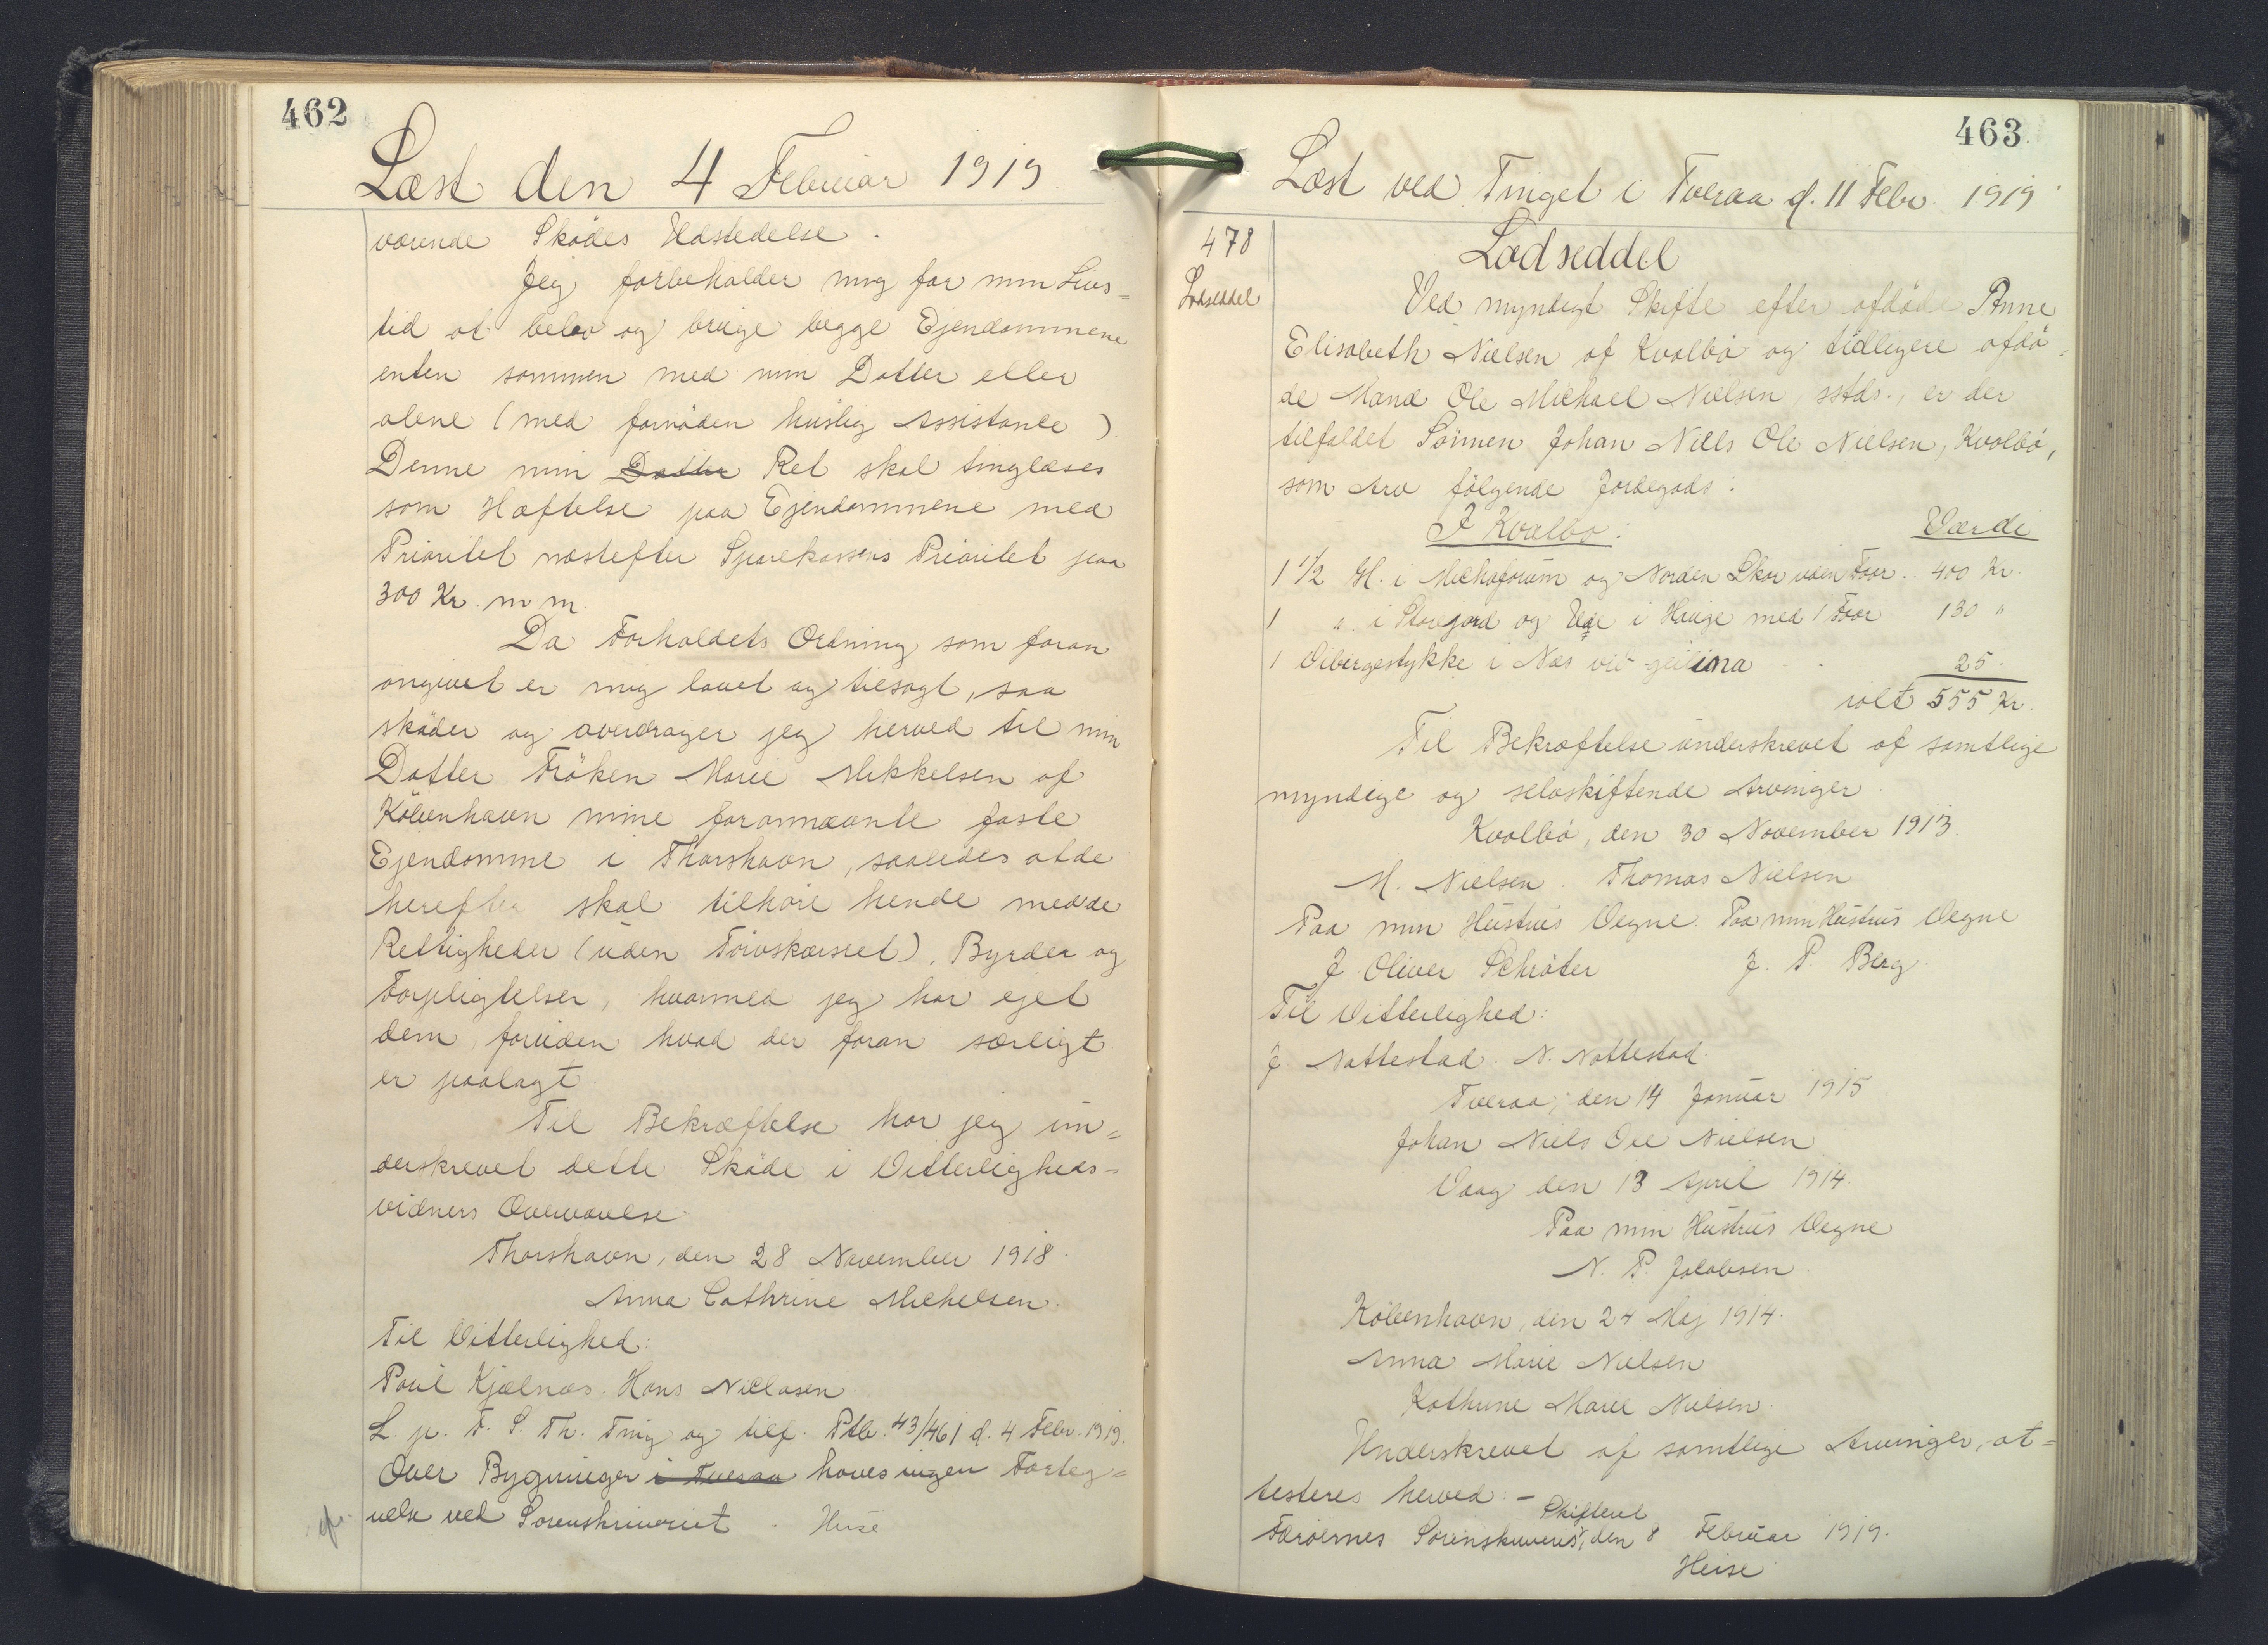 462
Læst den 4 Februar 1919
værende Skødes Udstedelse.
Jeg forbeholder mig for min Livs=
tid at bebo og bruge begge Ejendommene
enten sammen med min Datter eller
alene (med fornöden huslig Assistance).
Denne min Datter Ret skal tinglæses
som Hæftelse paa Ejendommene med
Prioritet næstefter Sparekassens Prioritet paa
300 Kr. m m.
Da Forholdets Ordning som foran
angivet er mig lovet og tilsagt, saa
sköder og overdrager jeg herved til min
Datter Fröken Marie Mikkelsen af
Köbenhavn mine forannævnte faste
Ejendomme i Thorshavn, saaledes at de
herefter skal tilhöre hende med de
Rettigheder (uden Törvskærsret), Byrder og
Forpligtelser, hvormed jeg har ejet
dem, foruden hvad der foran særligt
er paalagt.
Til Bekræftelse har jeg un=
derskrevet dette Sköde i Vitterligheds=
vidners Overværelse.
Thorshavn, den 28 November 1918.
Anna Cathrine Michelsen.
Til Vitterlighed:
Poul Kjælnæs. Hans Niclasen
L. p. F. S. Th. Ting og tilf. Ptb. 43/461 d. 4 Febr. 1919.
Over Bygninger i Tveraa haves ingen Forteg=
nelse ved Sorenskriveriet. Heise
463
Læst ved Tinget i Tveraa d. 11 Febr. 1919
478
Lodseddel
Lodseddel
Ved myndigt Skifte efter afdöde Anne
Elisabeth Nielsen af Kvalbö og tidligere afdö=
de Mand Ole Michael Nielsen, sstds., er der
tilfaldet Sönnen Johan Niels Ole Nielsen, Kvalbö,
som Arv fölgende Jordegods:
I Kvalbö:
Værdi
1 1/2 G. i og Norden Skor uden Foer. 400 Kr.
1 " i Storegjord og i Hauge med 1 Foer 130 "
1 Vibirgestykke i Næs ved 25.
ialt 555 Kr.
Til Bekræftelse underskrevet af samtlige
myndige og selvskiftende Arvinger.
Kvalbö, den 30 November 1913.
M. Nielsen. Thomas Nielsen
Paa min Hustrus Vegne. Paa min Hustrus Vegne
J Oliver Schröter J. P. Berg.
Til Vitterlighed:
J Nattestad. N. Nattestad.
Tveraa, den 14 Januar 1915
Johan Niels Ole Nielsen
Vaag den 13 April 1914.
Paa min Hustrus Vegne
N. P. Jacobsen.
Köbenhavn, den 24 Maj 1914.
Anna Marie Nielsen
Kathrine Marie Nielsen.
Underskrevet af samtlige Arvinger, at=
testeres herved. -
Skifteret
Færøernes Sorenskriveri, den 8 Februar 1919.
Heise